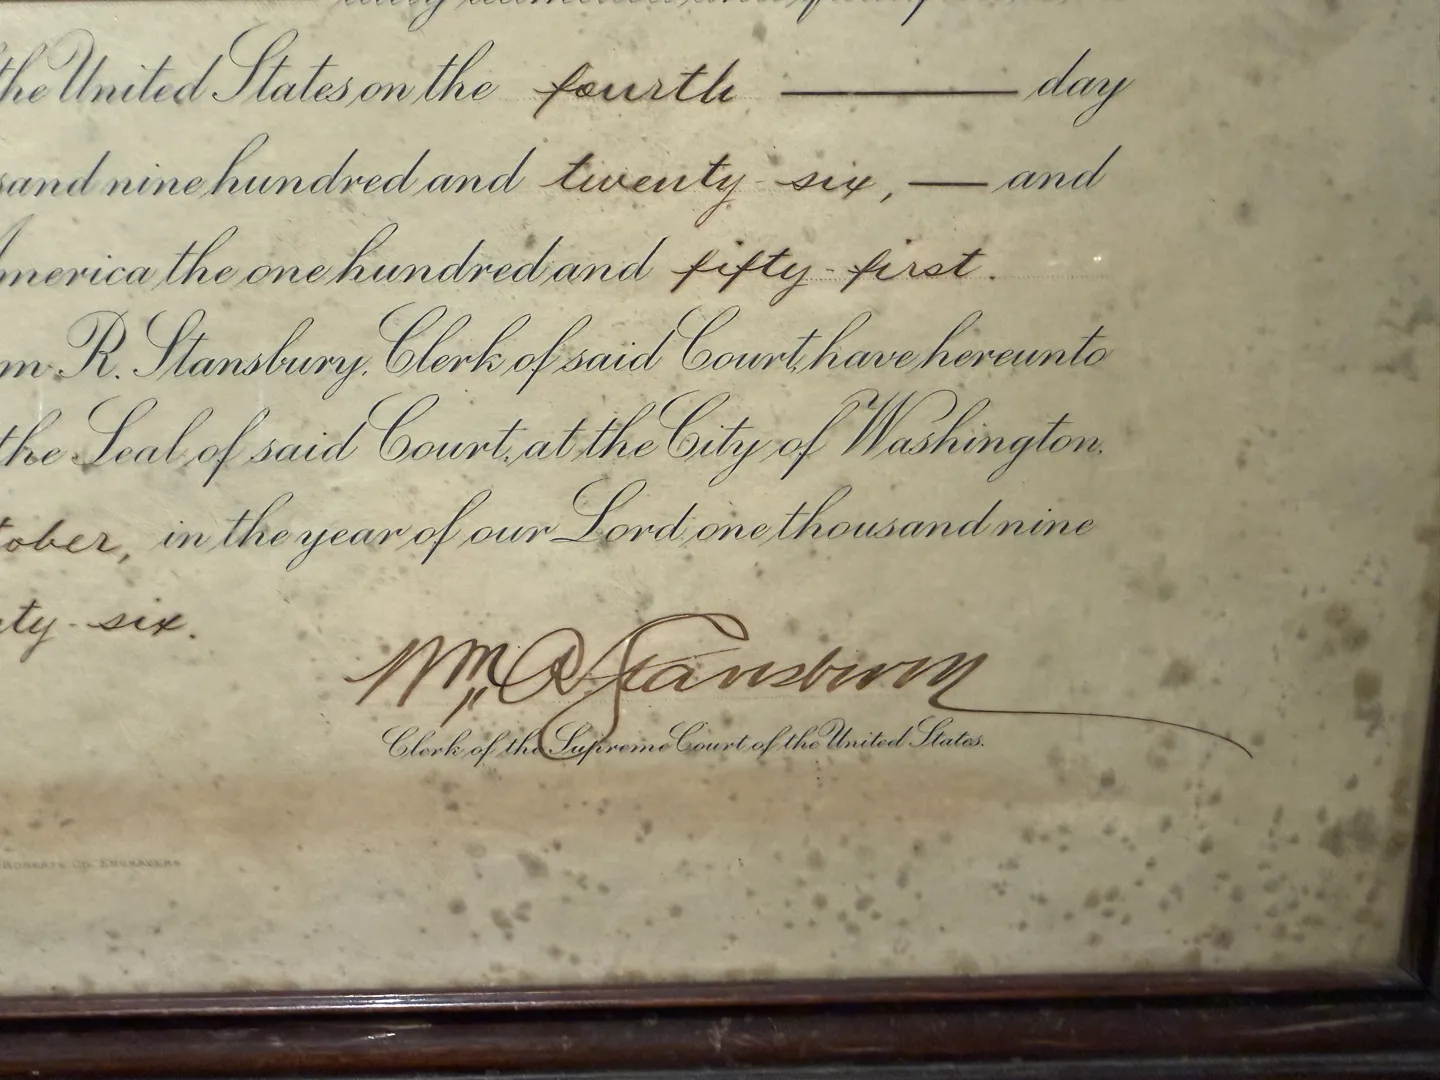 the United States on the fourth — day
sand nine hundred and twenty-six, — and
America the one hundred and fifty-first.
m R. Stansbury, Clerk of said Court, have hereunto
the Seal of said Court, at the City of Washington.
tober, in the year of our Lord one thousand nine
ty-six.
Wm R Stansbury
Clerk of the Supreme Court of the United States.
ROBERTS CO. ENGRAVERS